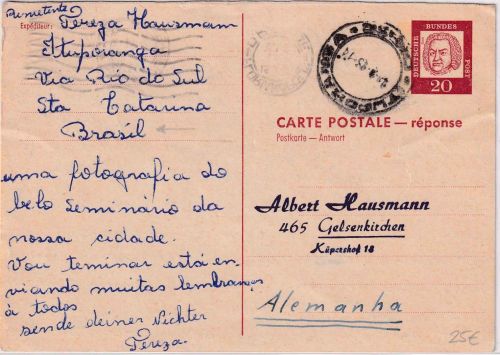 Remetente
Expéditeur:
Tereza Hausmann
Ituporanga
Via Rio do Sul
Sta Catarina
Brasil
uma fotografia do
belo Seminário da
nossa cidade.
Vou teminar está en-
viando muitas lembranças
à todos
sende deiner Nichter
Tereza.
DEUTSCHE
BUNDES
POST
20
CARTE POSTALE — réponse
Postkarte — Antwort
Albert Hausmann
465 Gelsenkirchen
Küpershof 18
Alemanha
25€